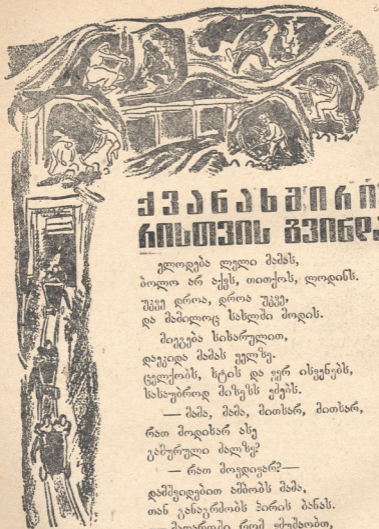 ქვანახშირი
რისთვის გვინდა
ელოდება ლელი მამას,
ბოლო არ აქვს, თითქოს, ლოდინს.
უკვე დროა, დროა უკვე,
და მამილოც სახლში მოდის.
მიეგება სიხარულით,
დაეკიდა მამას ყელზე.
ცელქობს, ხტის და ვერ ისვენებს,
სასაუბროდ მიზეზს ეძებს.
— მამა, მამა, მითხარ, მითხარ,
რათ მოდიხარ ასე
გამურული ძალზე?
— რათ მოვდივარ?—
დამშვიდებით ამბობს მამა,
თან განაგრძობს პირის ბანას.
—მაღაროში რომ ვმუშაობთ,